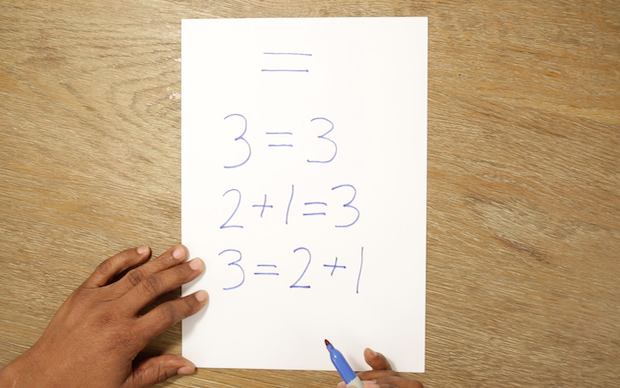 =
3=3
2+1=3
3=2+1